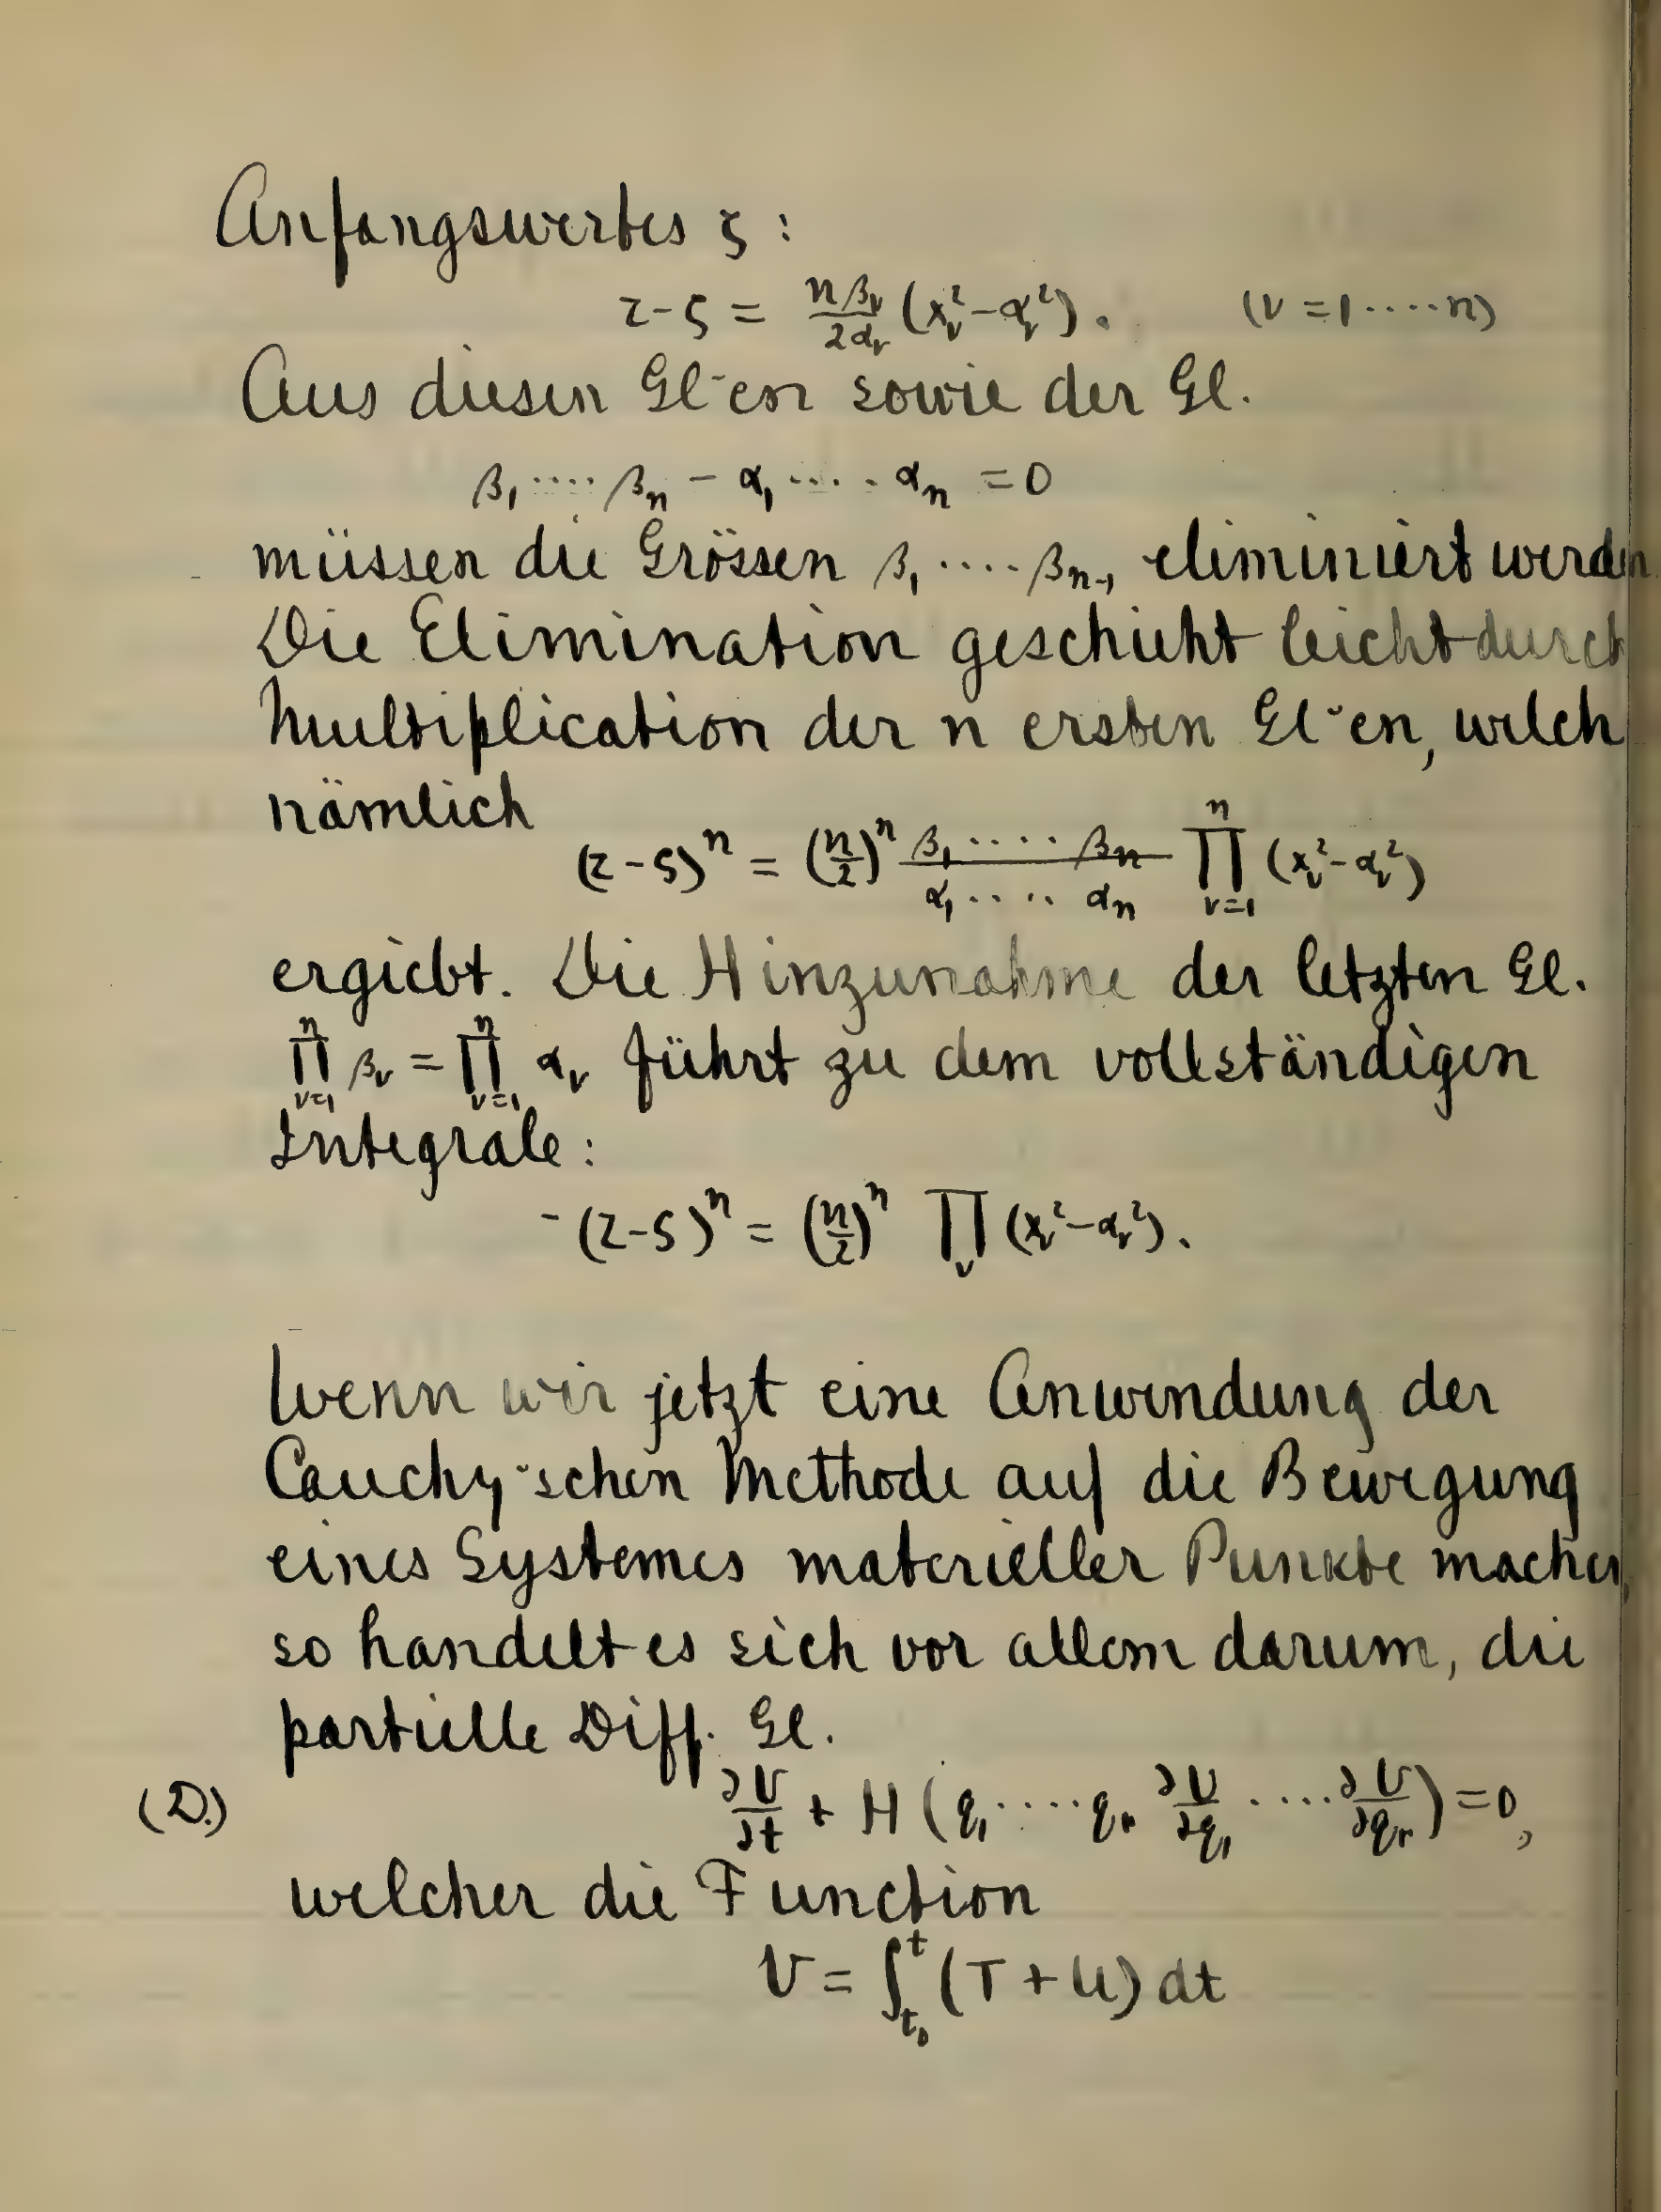 Anfangswertes ζ:
z-ζ = nβ_ν/2α_ν (x_ν²-α_ν²). (ν=1·····n)
Aus diesen Gl-en sowie der Gl.
β₁····β_n - α₁·····α_n = 0
müssen die Grössen β₁····β_{n-1} eliminiert werden
Die Elimination geschieht leicht durch
Multiplication der n ersten Gl-en, welch
nämlich
(z-ζ)^n = (n/2)^n β₁·····β_n/α₁·····α_n ∏_{ν=1}^n (x_ν²-α_ν²)
ergiebt. Die Hinzunahme der letzten Gl.
∏_{ν=1}^n β_ν = ∏_{ν=1}^n α_ν führt zu dem vollständigen
Integrale:
(z-ζ)^n = (n/2)^n ∏_ν (x_ν²-α_ν²).
Wenn wir jetzt eine Anwendung der
Cauchy-schen Methode auf die Bewegung
eines Systemes materieller Punkte machen,
so handelt es sich vor allem darum, die
partielle Diff. Gl.
(D.) ∂V/∂t + H(q₁····q_r ∂V/∂q₁ ····∂V/∂q_r) = 0,
welcher die Function
V = ∫_{t₀}^t (T+U) dt